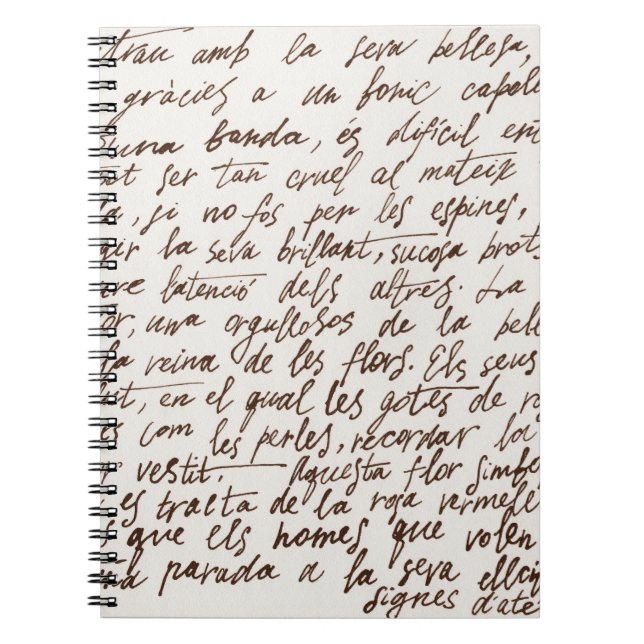 trau amb la seva bellesa,
gràcies a un bonic capoll
una banda, és difícil en
ot ser tan cruel al mateix
a, si no fos per les espines,
gir la seva brillant, sucosa brot
re l'atenció dels altres. La
or, una orgullosos de la bell
la reina de les flors. Els seus
it, en el qual les gotes de ro
es com les perles, recordar la
vestit. Aquesta flor simbo
es tracta de la rosa vermell
que els homes que volen
parada a la seva
signes d'ate